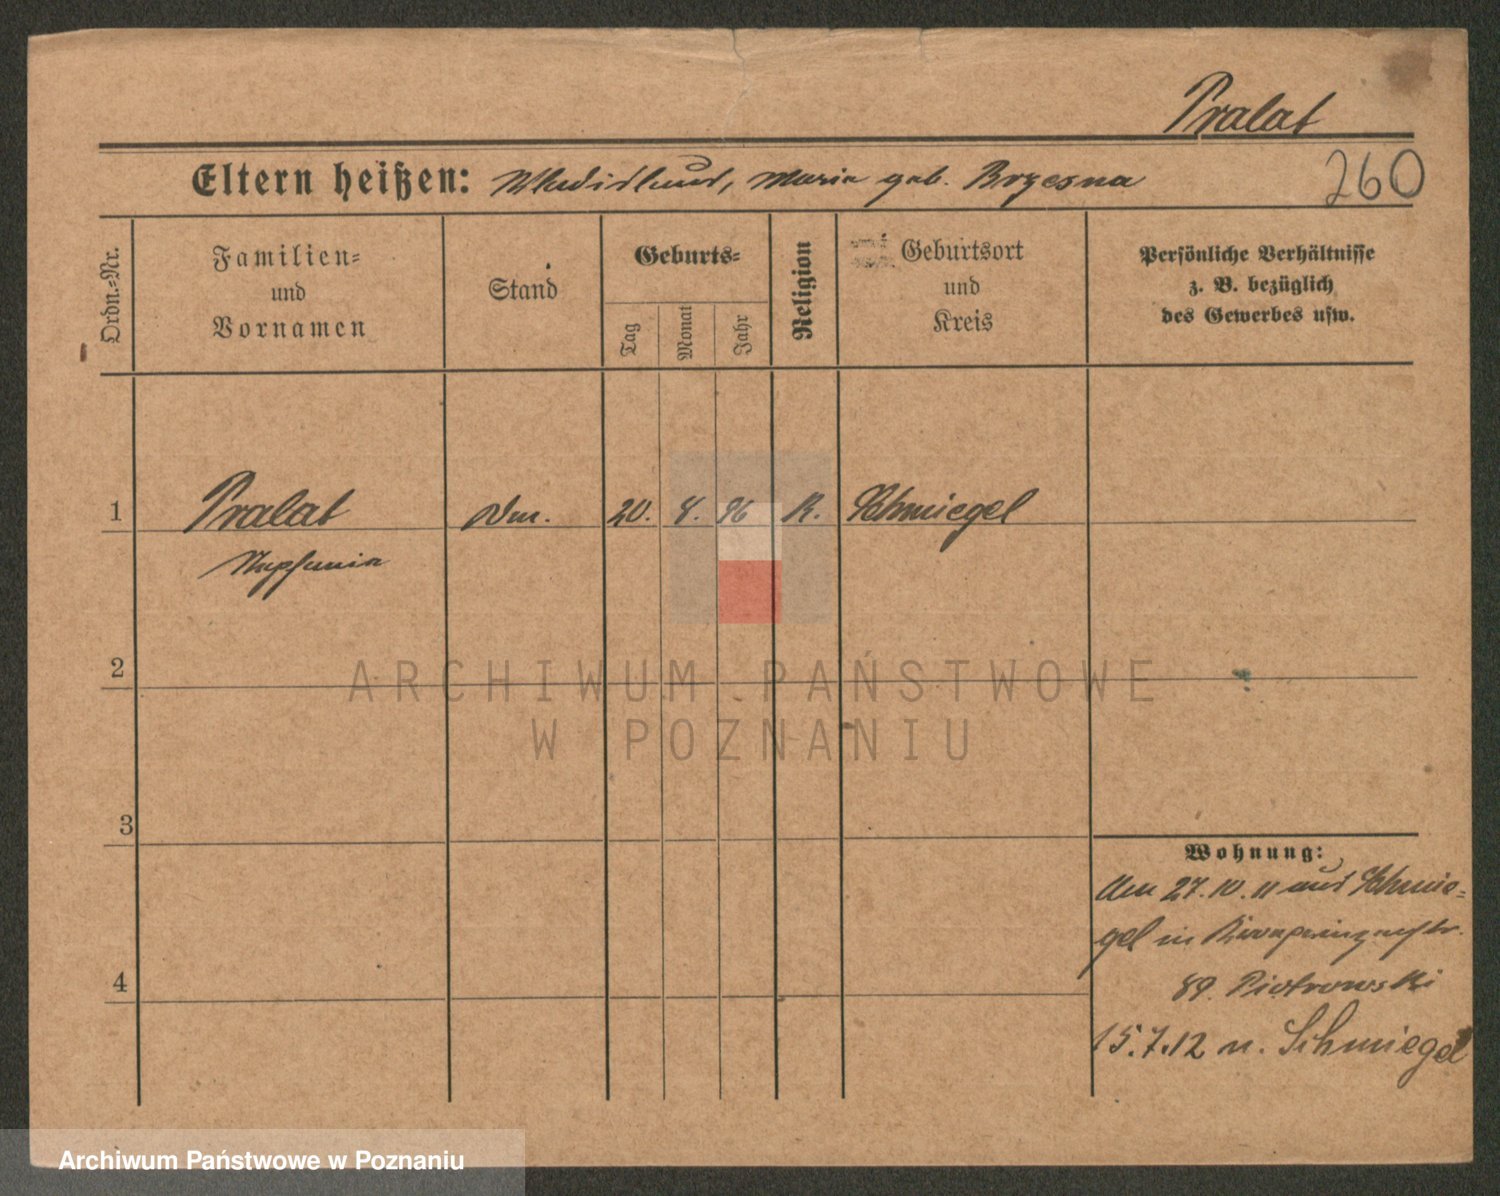 Pralat
Eltern heißen: Wladislaus, Maria geb. Brzesna
260
Ordn.-Nr.
Familien-
und
Vornamen
Stand
Geburts-
Tag
Monat
Jahr
Religion
Geburtsort
und
Kreis
Persönliche Verhältnisse
z. B. bezüglich
des Gewerbes usw.
1
Pralat
20.
8.
96
K.
Schmiegel
2
ARCHIWUM PAŃSTWOWE
W POZNANIU
3
Wohnung:
Am 27.10.11 aus Schmie-
gel in Kronprinzenstr.
4
89. Piotrowski
15.7.12 n. Schmiegel
Archiwum Państwowe w Poznaniu